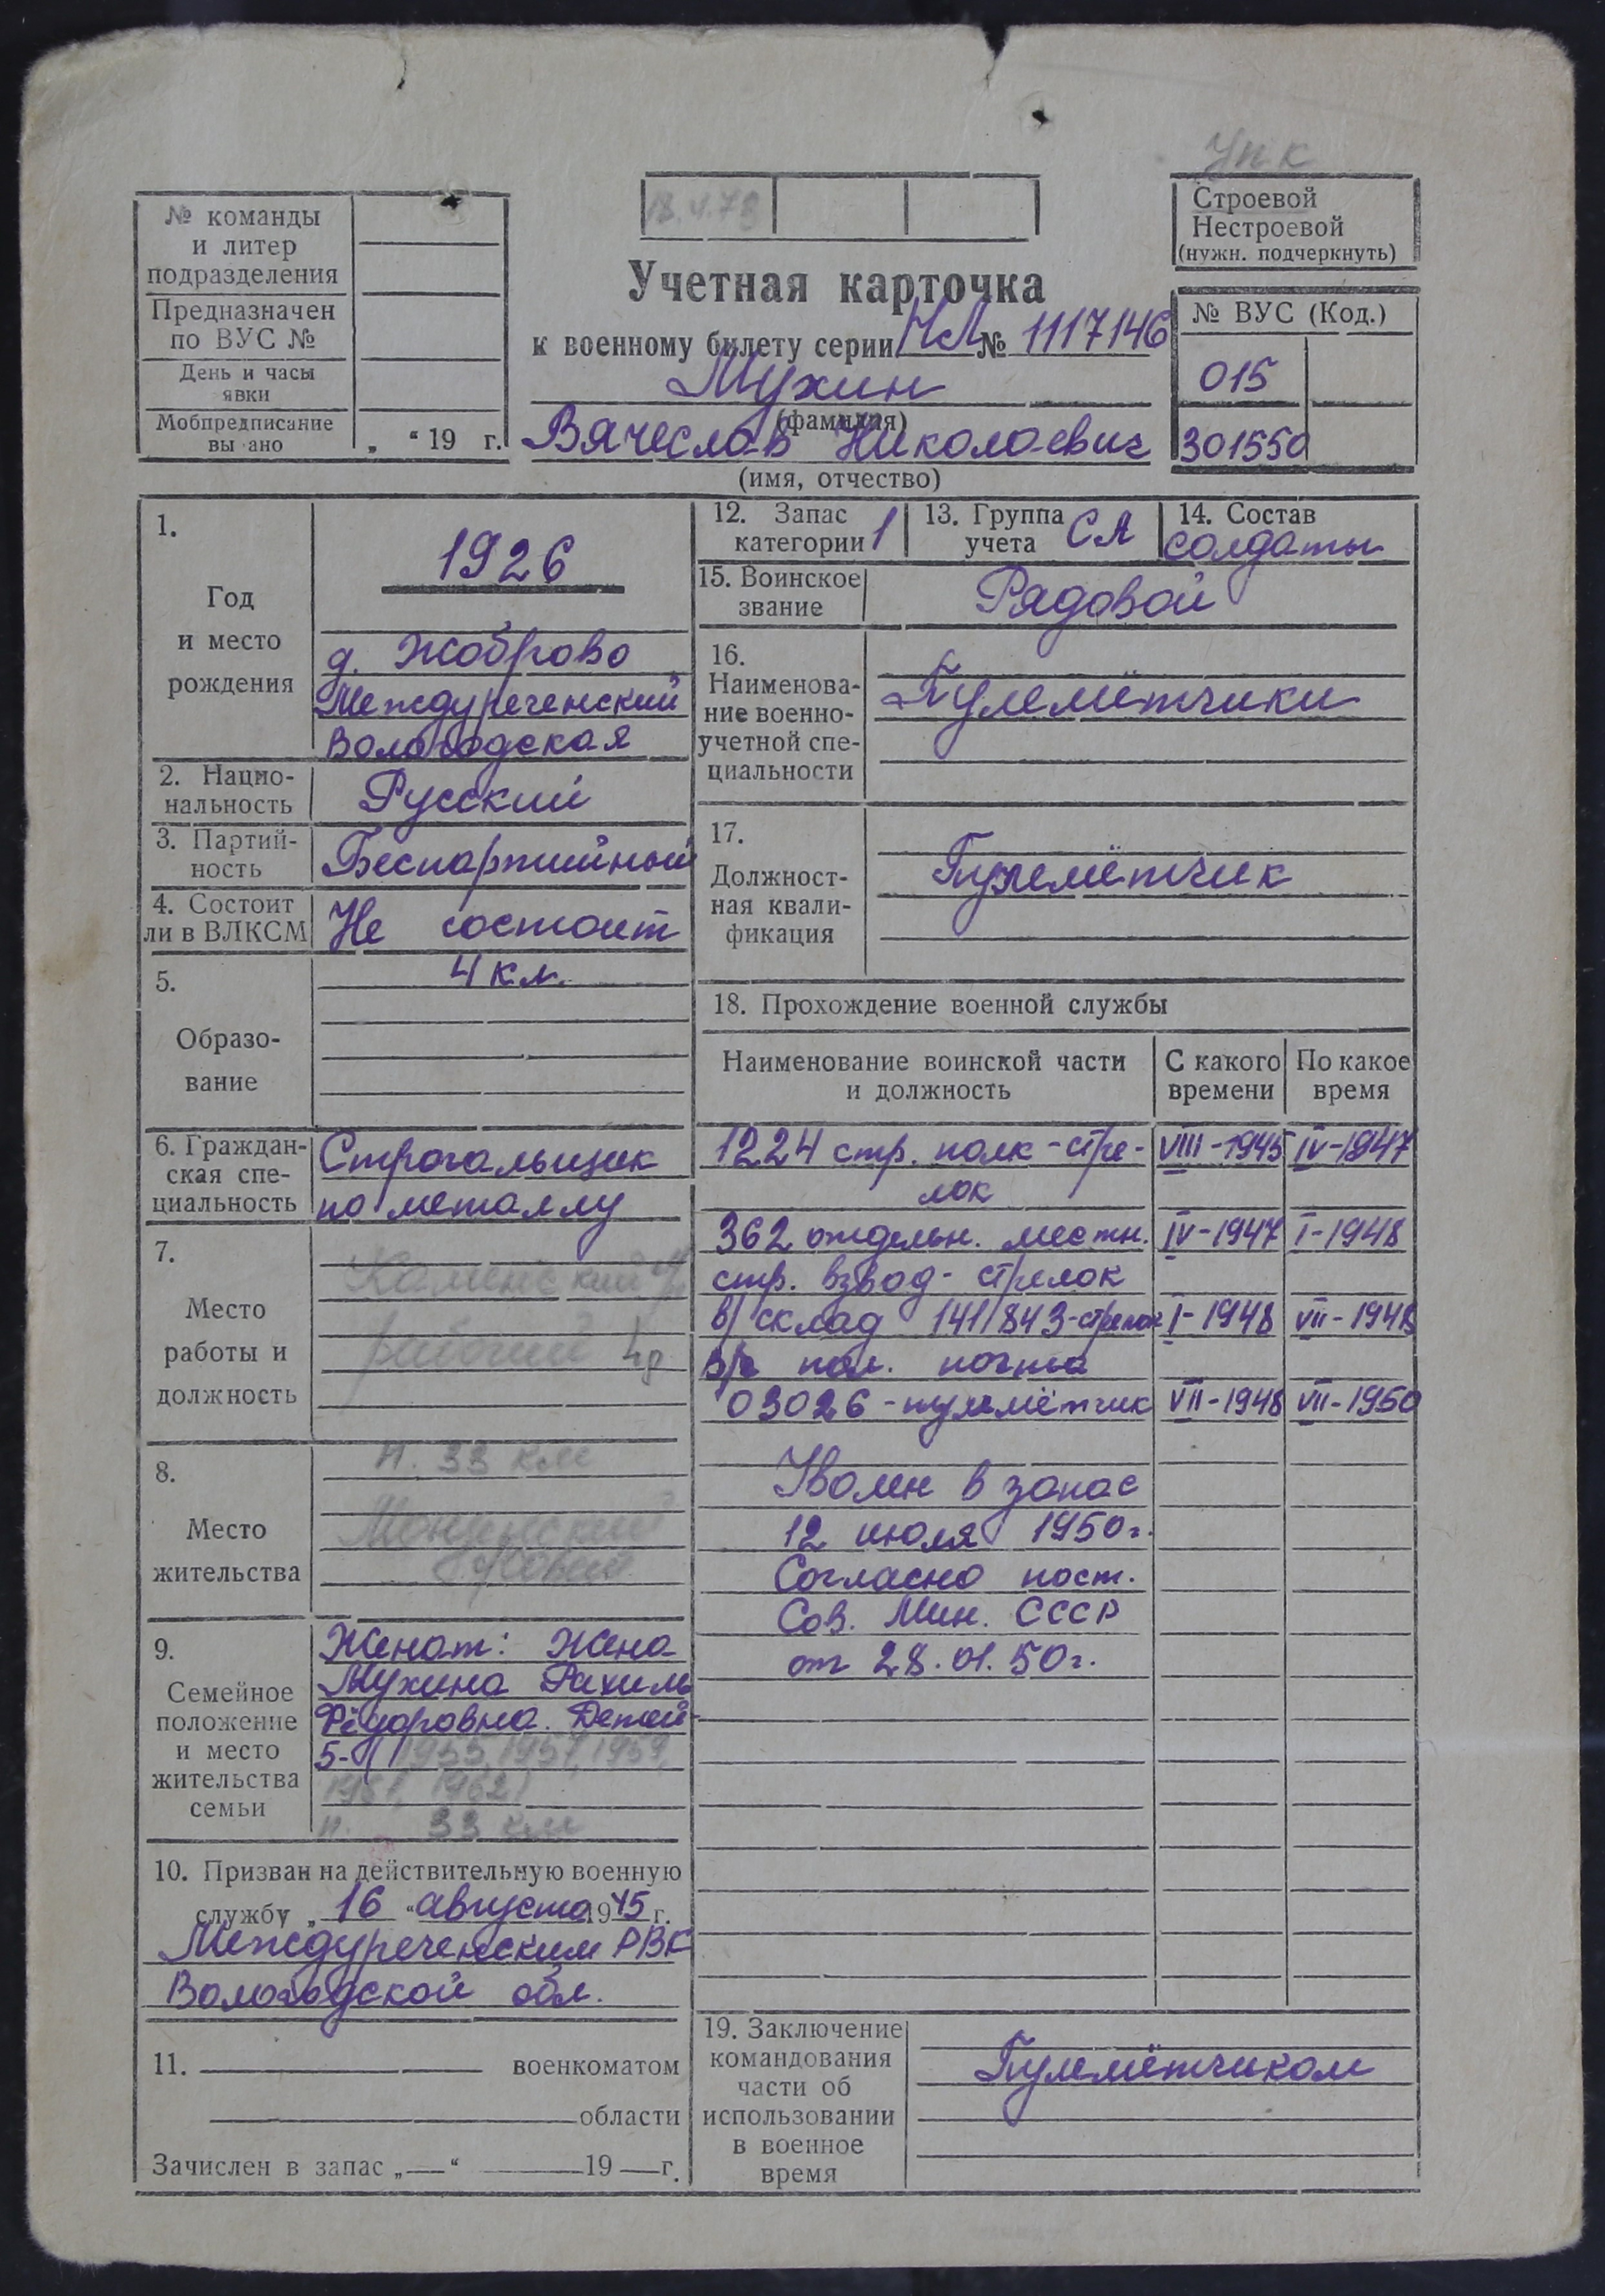 Упк
№ команды
и литер
подразделения
Предназначен
по ВУС №
День и часы
явки
Мобпредписание
вы ано „ “ 19 г.
18.4.78
Строевой
Нестроевой
(нужн. подчеркнуть)
Учетная карточка
к военному билету серии НЛ № 1117146
Мухин
(фамилия)
Вячеслав Николаевич
(имя, отчество)
№ ВУС (Код.)
015
301550
1.
Год
и место
рождения
1926
д. Жоброво
Междуреченский
Вологодская
2. Нацио-
нальность
Русский
3. Партий-
ность
Беспартийный
4. Состоит
ли в ВЛКСМ
Не состоит
5.
Образо-
вание
4 кл.
6. Граждан-
ская спе-
циальность
Строгальщик
по металлу
7.
Место
работы и
должность
Каменский
рабочий 4р
8.
Место
жительства
п. 33 км
9.
Семейное
положение
и место
жительства
семьи
Женат: Жена
Мухина Рахиль
Фёдоровна. Детей
5-(1955, 1957, 1959,
1962)
п. 33 км
10. Призван на действительную военную
службу „ 16 “ августа 1945 г.
Междуреченским РВК
Вологодской обл.
11. военкоматом
области
Зачислен в запас „ “ 19 г.
12. Запас
категории 1
13. Группа
учета СА
14. Состав
солдаты
15. Воинское
звание
Рядовой
16.
Наименова-
ние военно-
учетной спе-
циальности
Пулемётчики
17.
Должност-
ная квали-
фикация
Пулемётчик
18. Прохождение военной службы
Наименование воинской части
и должность
С какого
времени
По какое
время
1224 стр. полк - стре- VIII-1945 IV-1947
лок
362 отдельн. местн. IV-1947 I-1948
стр. взвод - стрелок
в/склад 141/843-стрелок I-1948 VII-1948
в/ч пол. почта
03026 - пулемётчик VII-1948 VII-1950
Уволен в запас
12 июля 1950г.
Согласно пост.
Сов. Мин. СССР
от 28.01.50г.
19. Заключение
командования
части об
использовании
в военное
время
Пулемётчиком